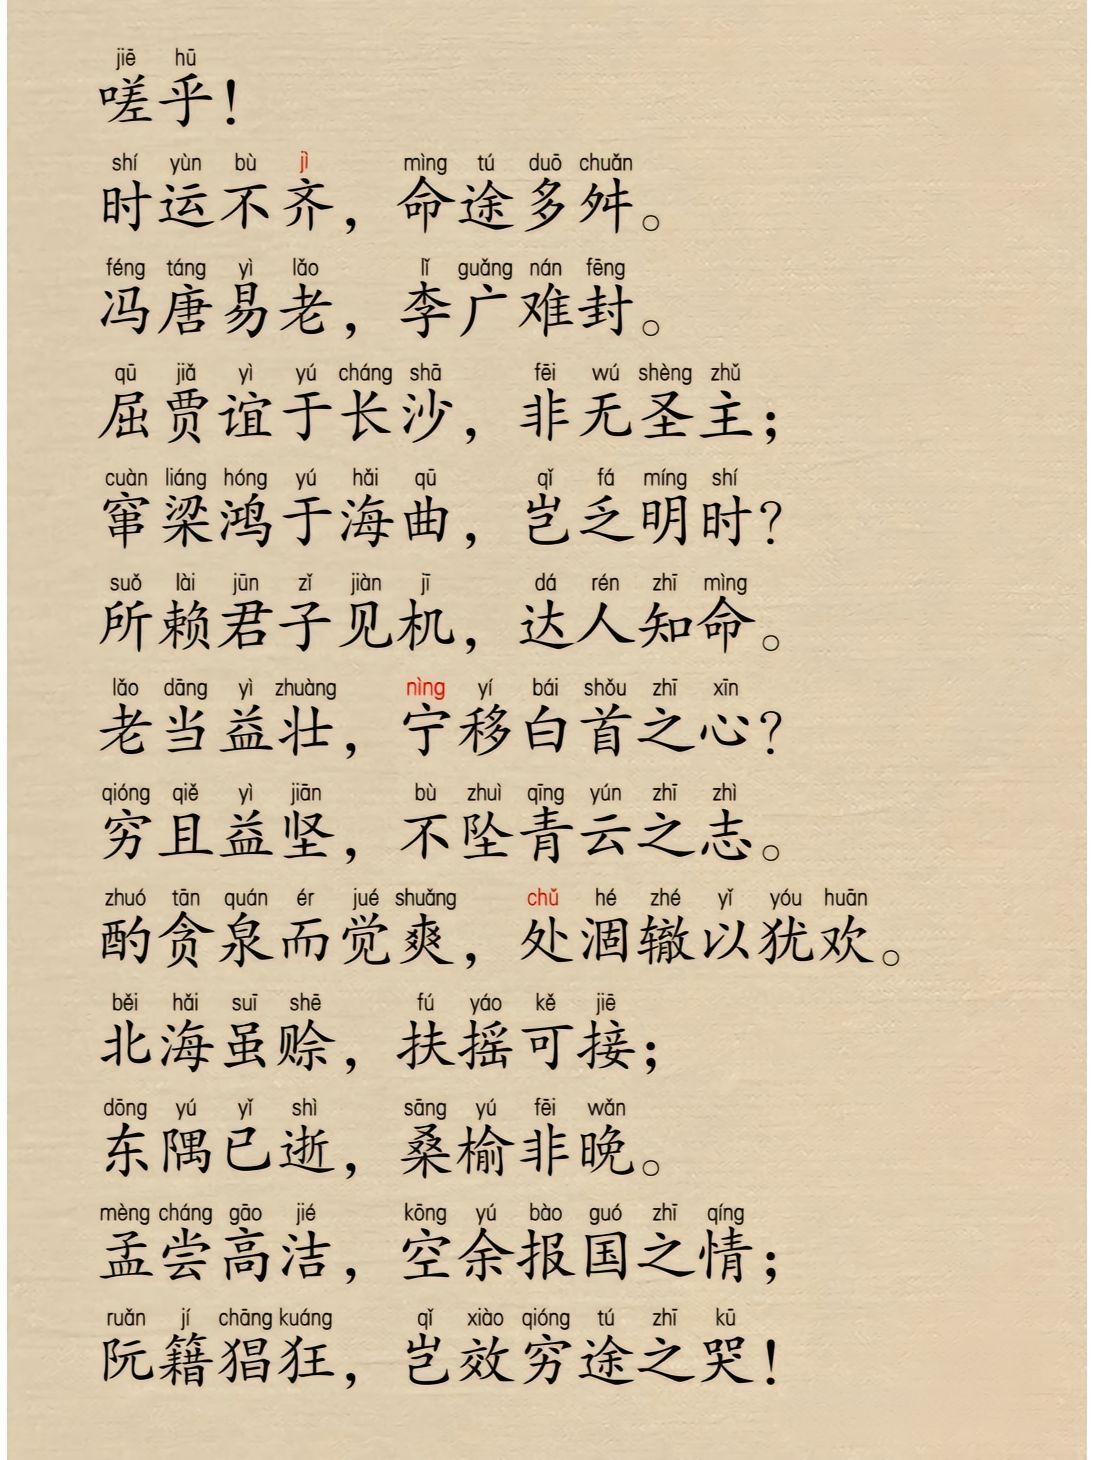 jiē hū
嗟乎！
shí yùn bù jì mìng tú duō chuǎn
时运不齐，命途多舛。
féng táng yì lǎo lǐ guǎng nán fēng
冯唐易老，李广难封。
qū jiǎ yì yú cháng shā fēi wú shèng zhǔ
屈贾谊于长沙，非无圣主；
cuàn liáng hóng yú hǎi qū qǐ fá míng shí
窜梁鸿于海曲，岂乏明时？
suǒ lài jūn zǐ jiàn jī dá rén zhī mìng
所赖君子见机，达人知命。
lǎo dāng yì zhuàng nìng yí bái shǒu zhī xīn
老当益壮，宁移白首之心？
qióng qiě yì jiān bù zhuì qīng yún zhī zhì
穷且益坚，不坠青云之志。
zhuó tān quán ér jué shuǎng chǔ hé zhé yǐ yóu huān
酌贪泉而觉爽，处涸辙以犹欢。
běi hǎi suī shē fú yáo kě jiē
北海虽赊，扶摇可接；
dōng yú yǐ shì sāng yú fēi wǎn
东隅已逝，桑榆非晚。
mèng cháng gāo jié kōng yú bào guó zhī qíng
孟尝高洁，空余报国之情；
ruǎn jí chāng kuáng qǐ xiào qióng tú zhī kū
阮籍猖狂，岂效穷途之哭！